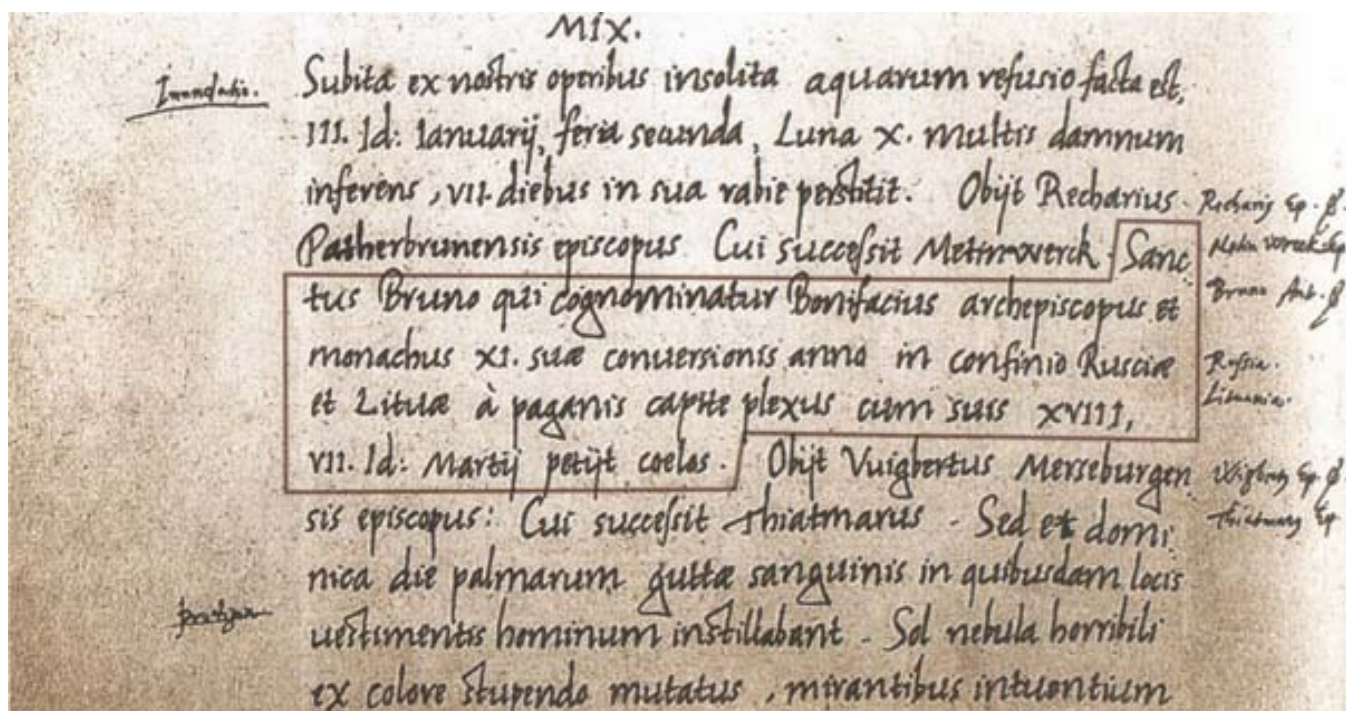 MIX.
Subita ex nostris operibus insolita aquarum refusio facta est,
III. Id: Ianuarij, feria secunda, Luna X. multis damnum
inferens, VII. diebus in sua rabie perstitit. Obijt Recharius
Patherbrunensis episcopus Cui successit Meinwerck. Sanc
tus Bruno qui cognominatur Bonifacius archepiscopus et
monachus XI. suæ conversionis anno in confinio Rusciæ
et Lituæ à paganis capite plexus cum suis XVIII,
VII. Id: Martij petijt coelos. Obijt Vuigbertus Merseburgen
sis episcopus: Cui successit Thiatmarus. Sed et domi
nica die palmarum guttæ sanguinis in quibusdam locis
uestimentis hominum instillabant. Sol nebula horribili
ex colore stupendo mutatus, mirantibus intuentium
Inundatio.
Ep.
Bruno
Russia.
Lituania.
Ep.
Ep